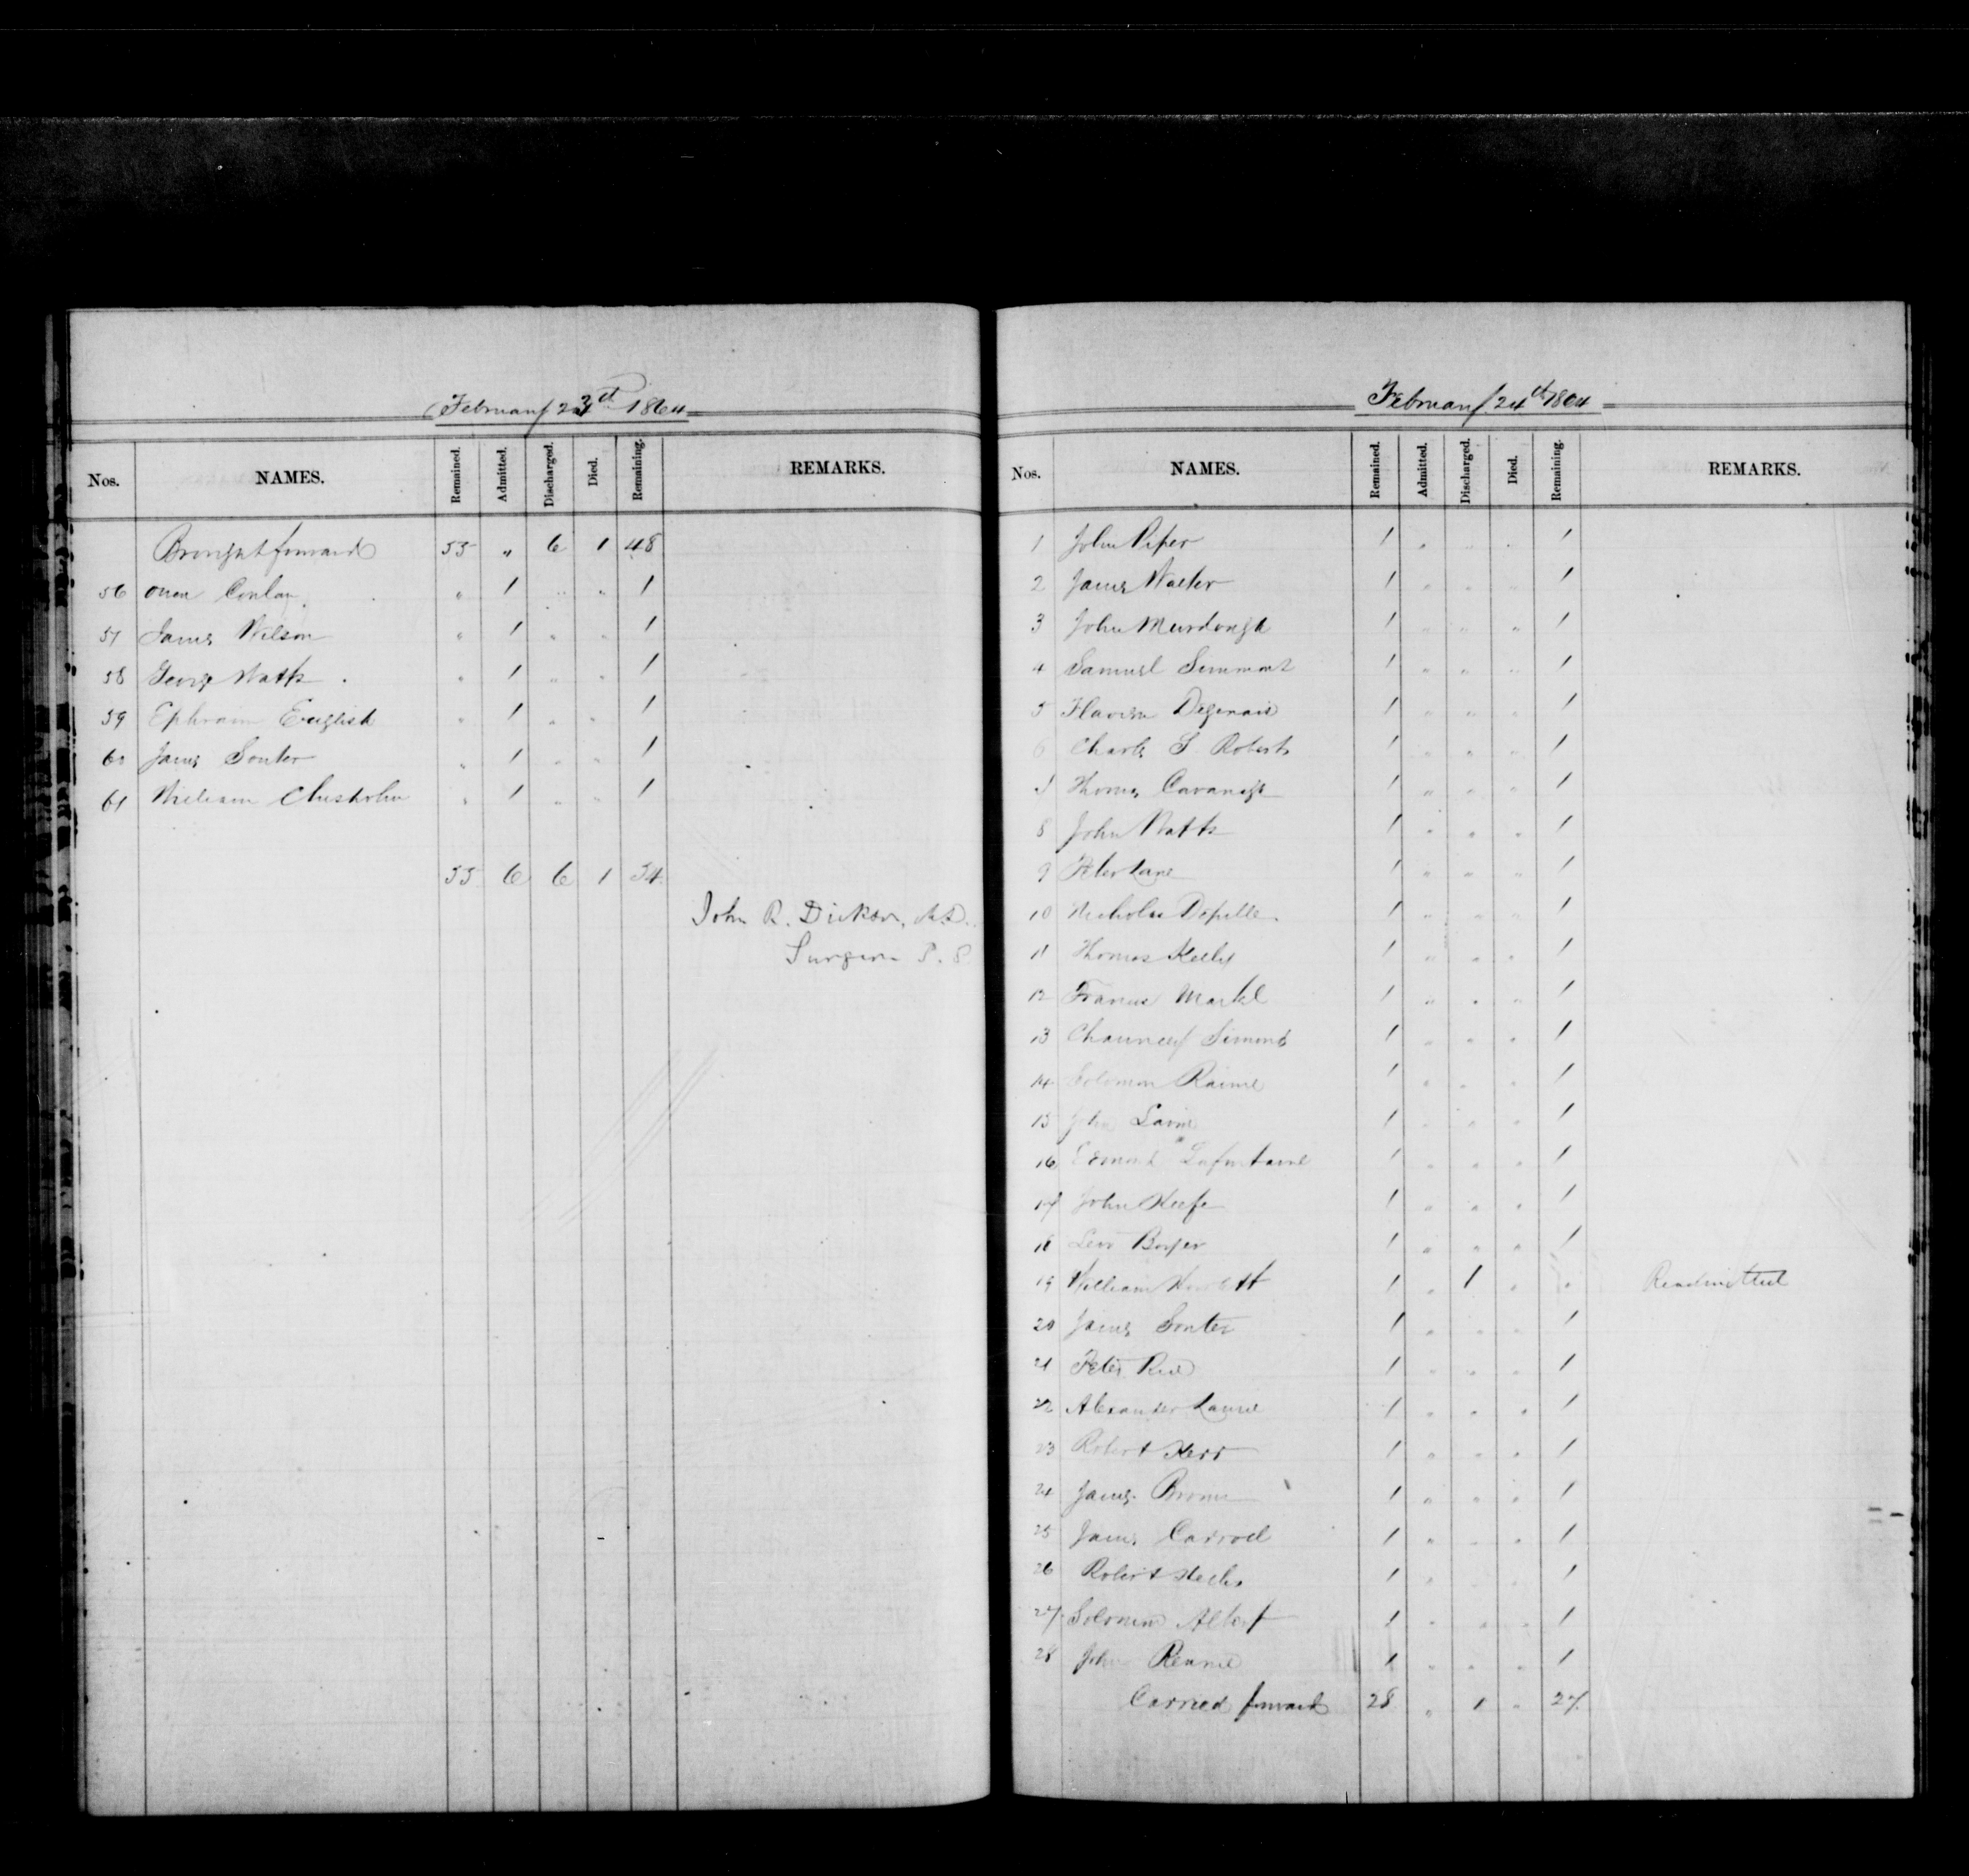 February 23rd 1864
Nos. NAMES. Remained. Admitted. Discharged. Died. Remaining. REMARKS.
Brought forward 55 " 6 1 48
56 Owen Conlan " 1 " " 1
57 James Wilson " 1 " " 1
58 George Watts " 1 " " 1
59 Ephraim English " 1 " " 1
60 James Souter " 1 " " 1
61 William Chisholm " 1 " " 1
55 6 6 1 54
John R. Dickson, M.D.
Surgeon P. P.
February 24th 1864
Nos. NAMES. Remained. Admitted. Discharged. Died. Remaining. REMARKS.
1 John Piper 1 " " " 1
2 James Walter 1 " " " 1
3 John Murdough 1 " " " 1
4 Samuel Simmons 1 " " " 1
5 Degenais 1 " " " 1
6 Charles S. Roberts 1 " " " 1
7 Thomas Cavanagh 1 " " " 1
8 John Watts 1 " " " 1
9 Peter Lane 1 " " " 1
10 Nicholas 1 " " " 1
11 Thomas Kelly 1 " " " 1
12 Francis Markl 1 " " " 1
13 Chauncey Simons 1 " " " 1
14 Solomon 1 " " " 1
15 John 1 " " " 1
16 Edmond Lafontaine 1 " " " 1
17 John Keefe 1 " " " 1
18 Levi Boyer 1 " " " 1
19 William 1 " 1 " " Readmitted
20 James Souter 1 " " " 1
21 Peter Reid 1 " " " 1
22 Alexander Laurie 1 " " " 1
23 Robert Kerr 1 " " " 1
24 James Brown 1 " " " 1
25 James Carroll 1 " " " 1
26 Robert 1 " " " 1
27 Solomon Albert 1 " " " 1
28 John Rennie 1 " " " 1
Carried forward 28 " 1 " 27